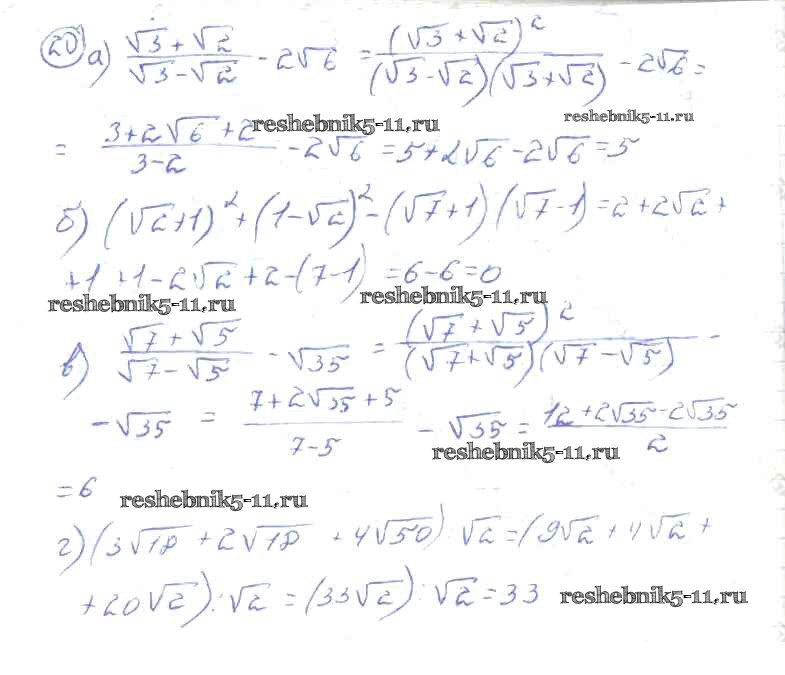 20 а) (√3 + √2)/(√3 − √2) − 2√6 = (√3 + √2)²/((√3 − √2)(√3 + √2)) − 2√6 =
= (3 + 2√6 + 2)/(3 − 2) − 2√6 = 5 + 2√6 − 2√6 = 5
reshebnik5-11.ru reshebnik5-11.ru
б) (√2 + 1)² + (1 − √2)² − (√7 + 1)(√7 − 1) = 2 + 2√2 +
+ 1 + 1 − 2√2 + 2 − (7 − 1) = 6 − 6 = 0
reshebnik5-11.ru reshebnik5-11.ru
в) (√7 + √5)/(√7 − √5) − √35 = (√7 + √5)²/((√7 + √5)(√7 − √5)) −
− √35 = (7 + 2√35 + 5)/(7 − 5) − √35 = (12 + 2√35 − 2√35)/2
reshebnik5-11.ru
= 6 reshebnik5-11.ru
г) (3√18 + 2√18 + 4√50) : √2 = (9√2 + 4√2 +
+ 20√2) : √2 = (33√2) : √2 = 33 reshebnik5-11.ru